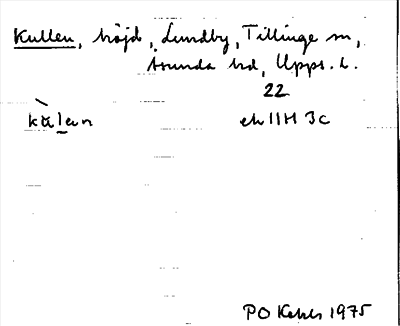 Kullen, höjd, Lundby, Tillinge sn,
Åsunda hd, Upps. l.
22
ek 11H 3c
PO 1975